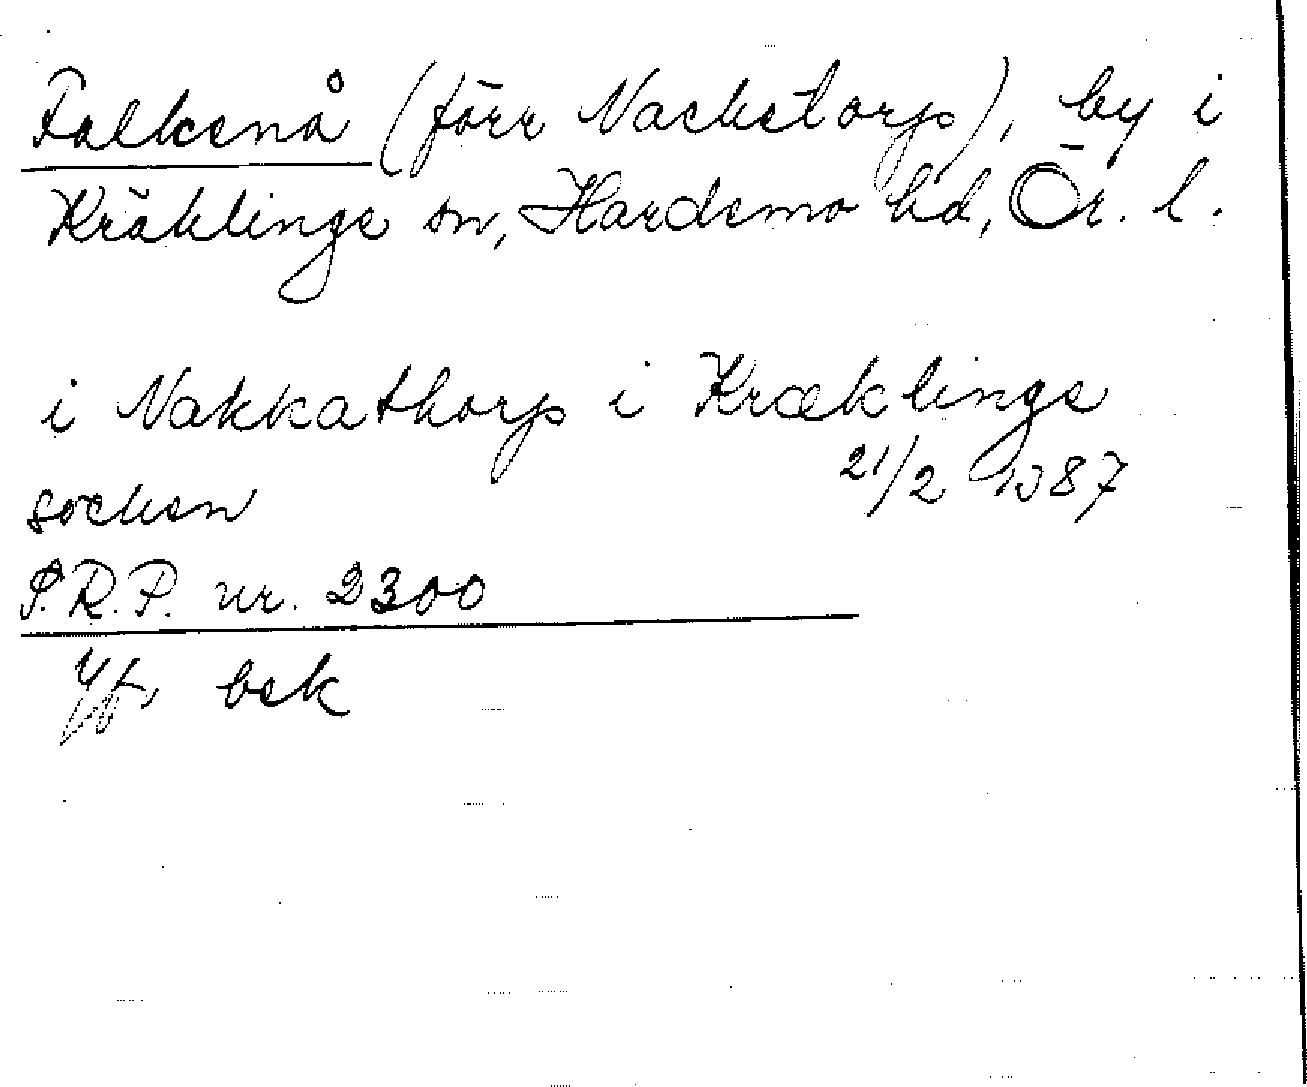 Falkenå (förr Nackstorp), by i
Kräklinge sn, Hardemo hd, Ör. l.
i Nakkathorp i Kræklinge
21/2 1387
socken
S.R.P. nr. 2300
bek